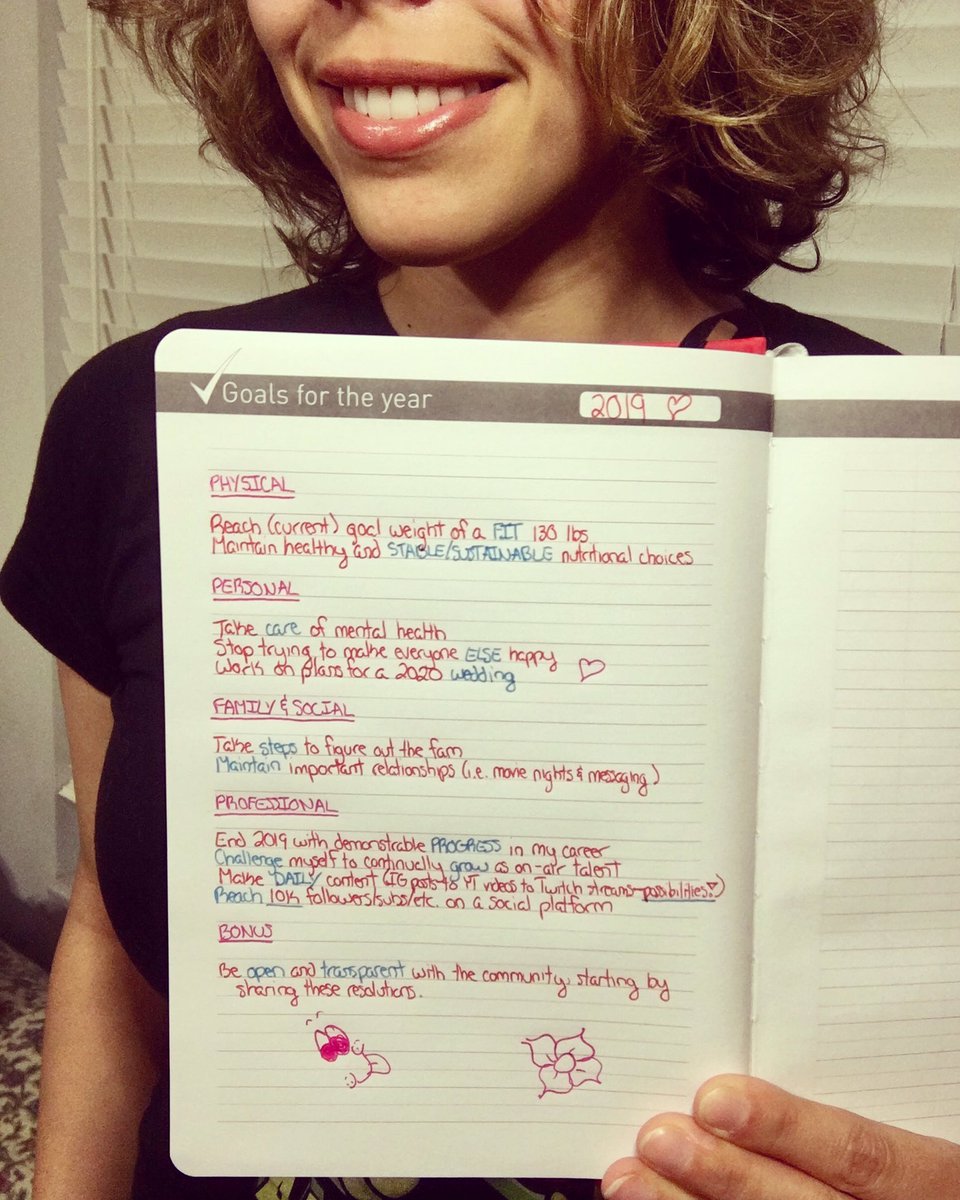 Goals for the year
2019
PHYSICAL
Reach (current) goal weight of a FIT 130 lbs.
Maintain healthy and STABLE/SUSTAINABLE nutritional choices
PERSONAL
Take care of mental health
Stop trying to make everyone ELSE happy
Work on plans for a 2020 wedding
FAMILY & SOCIAL
Take steps to figure out the fam
Maintain important relationships (i.e. movie nights & messaging)
PROFESSIONAL
End 2019 with demonstrable PROGRESS in my career
Challenge myself to continually grow as on-air talent
Make DAILY content (IG posts to YT videos to Twitch streams-possibilities!)
Reach 10K followers/subs/etc. on a social platform
BONUS
Be open and transparent with the community, starting by
sharing these resolutions.